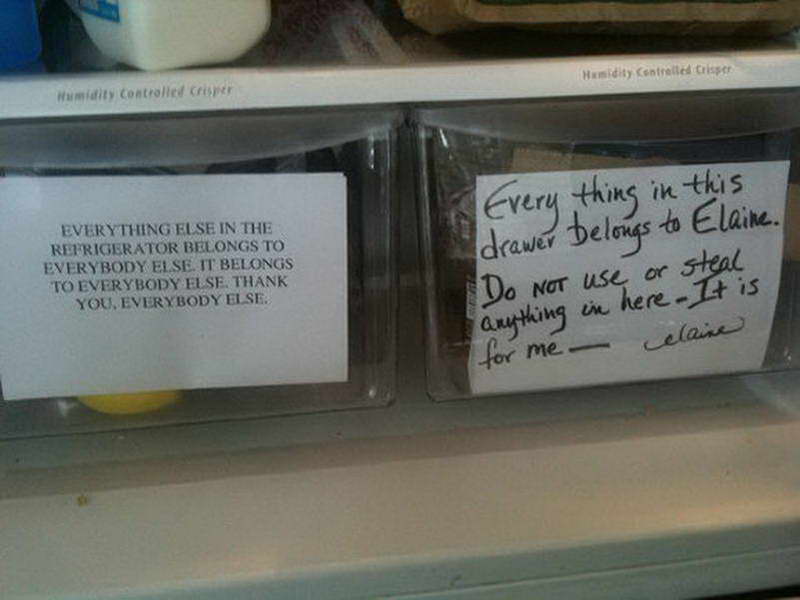 Humidity Controlled Crisper
Humidity Controlled Crisper
EVERYTHING ELSE IN THE
REFRIGERATOR BELONGS TO
EVERYBODY ELSE. IT BELONGS
TO EVERYBODY ELSE. THANK
YOU, EVERYBODY ELSE.
Every thing in this
drawer belongs to Elaine.
Do NOT use or steal
anything in here - It is
for me — elaine